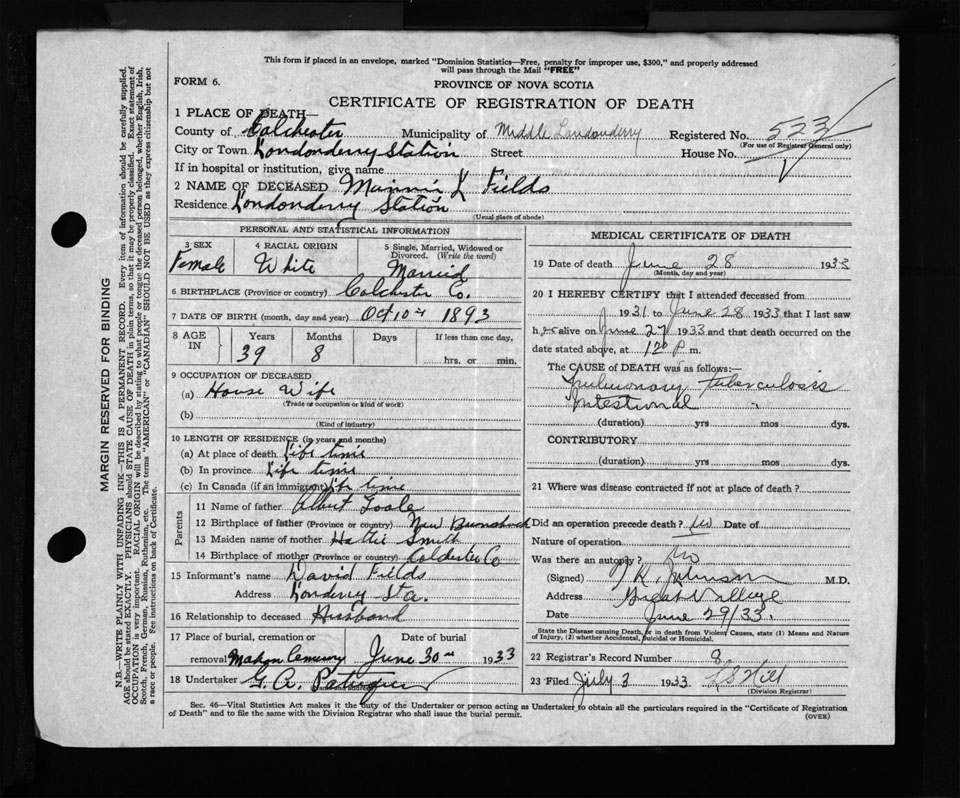 This form if placed in an envelope, marked "Dominion Statistics—Free, penalty for improper use, $300," and properly addressed
will pass through the Mail "FREE"
FORM 6.
PROVINCE OF NOVA SCOTIA
CERTIFICATE OF REGISTRATION OF DEATH
1 PLACE OF DEATH—
County of Colchester Municipality of Middle Londonderry Registered No. 523
(For use of Registrar General only)
City or Town Londonderry Station Street House No.
If in hospital or institution, give name
2 NAME OF DECEASED Minnie L Fields
Residence Londonderry Station
(Usual place of abode)
PERSONAL AND STATISTICAL INFORMATION
3 SEX 4 RACIAL ORIGIN 5 Single, Married, Widowed or
Divorced. (Write the word)
Female White Married
6 BIRTHPLACE (Province or country) Colchester Co.
7 DATE OF BIRTH (month, day and year) Oct 10th 1893
8 AGE IN Years Months Days If less than one day,
39 8 hrs. or min.
9 OCCUPATION OF DECEASED
(a) House Wife
(Trade or occupation or kind of work)
(b)
(Kind of industry)
10 LENGTH OF RESIDENCE (in years and months)
(a) At place of death Life time
(b) In province Life time
(c) In Canada (if an immigrant) Life time
Parents
11 Name of father Albert Toole
12 Birthplace of father (Province or country) New Brunswick
13 Maiden name of mother Hattie Smith
14 Birthplace of mother (Province or country) Colchester Co
15 Informant's name David Fields
Address Londerry Sta.
16 Relationship to deceased Husband
17 Place of burial, cremation or Date of burial
removal Mahon Cemetery June 30th 1933
18 Undertaker G. A.
MEDICAL CERTIFICATE OF DEATH
19 Date of death June 28 1933
(Month, day and year)
20 I HEREBY CERTIFY that I attended deceased from
1931 to June 28 1933 that I last saw
her alive on June 27 1933 and that death occurred on the
date stated above, at 120 p m.
The CAUSE OF DEATH was as follows:—
Pulmonary tuberculosis
Intestional "
(duration) yrs mos dys.
CONTRIBUTORY
(duration) yrs. mos. dys.
21 Where was disease contracted if not at place of death?
Did an operation precede death? no Date of
Nature of operation
Was there an autopsy? no
(Signed) Johnson M.D.
Address Great Village
Date June 29/33.
State the Disease causing Death, or in death from Violent Causes, state (1) Means and Nature
of Injury, (2) whether Accidental, Suicidal or Homicidal.
22 Registrar's Record Number 8
23 Filed July 3 1933. Hill
(Division Registrar)
Sec. 46—Vital Statistics Act makes it the duty of the Undertaker or person acting as Undertaker to obtain all the particulars required in the "Certificate of Registration
of Death" and to file the same with the Division Registrar who shall issue the burial permit.
(OVER)
MARGIN RESERVED FOR BINDING
N.B.—WRITE PLAINLY WITH UNFADING INK—THIS IS A PERMANENT RECORD. Every item of information should be carefully supplied.
AGE should be stated EXACTLY. PHYSICIANS should STATE CAUSE OF DEATH in plain terms, so that it may be properly classified. Exact statement of
OCCUPATION is very important. RACIAL ORIGIN will be described by stating to what people or tongue the deceased person belonged, whether English, Irish,
Scotch, French, German, Russian, Ruthenian, etc. The terms "AMERICAN" or "CANADIAN" SHOULD NOT BE USED as they express citizenship but not
a race or people. See instructions on back of Certificate.